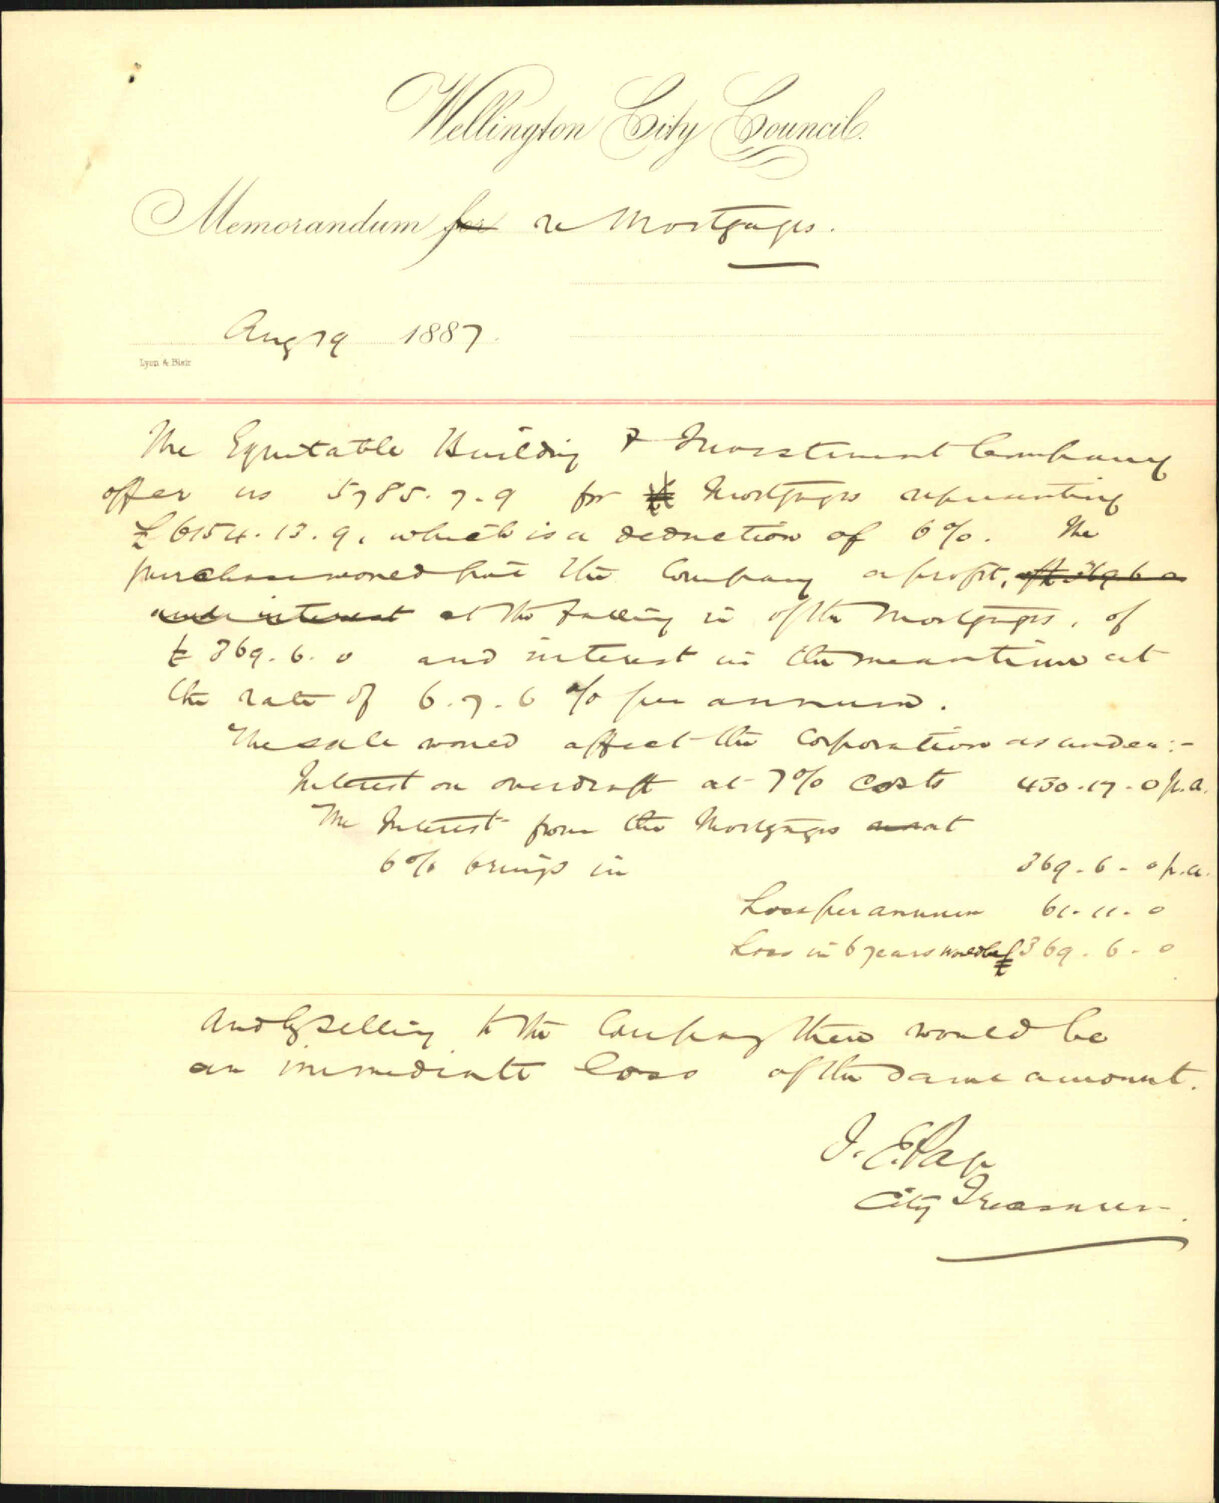 Wellington City Council.
Memorandum for re Mortgages.
Aug 19 1887.
Lyon & Blair
The Equitable Building & Investment Company
offer us 5785.7.9 for £ Mortgages representing
£6154.13.9, which is a deduction of 6%. The
purchase would give the Company a profit, of £369 6 0
and interest at the falling in of the Mortgages, of
£369.6.0 and interest in the meantime at
the rate of 6.7.6 % per annum.
The sale would affect the Corporation as under:-
Interest on overdraft at 7% costs 430.17.0 p.a.
The Interest from the Mortgages at
6% brings in 369.6.0 p.a.
Loss per annum 61.11.0
Loss in 6 years would be £369.6.0
And by selling to the Company there would be
an immediate loss of the same amount.
J. E. Page
City Treasurer.